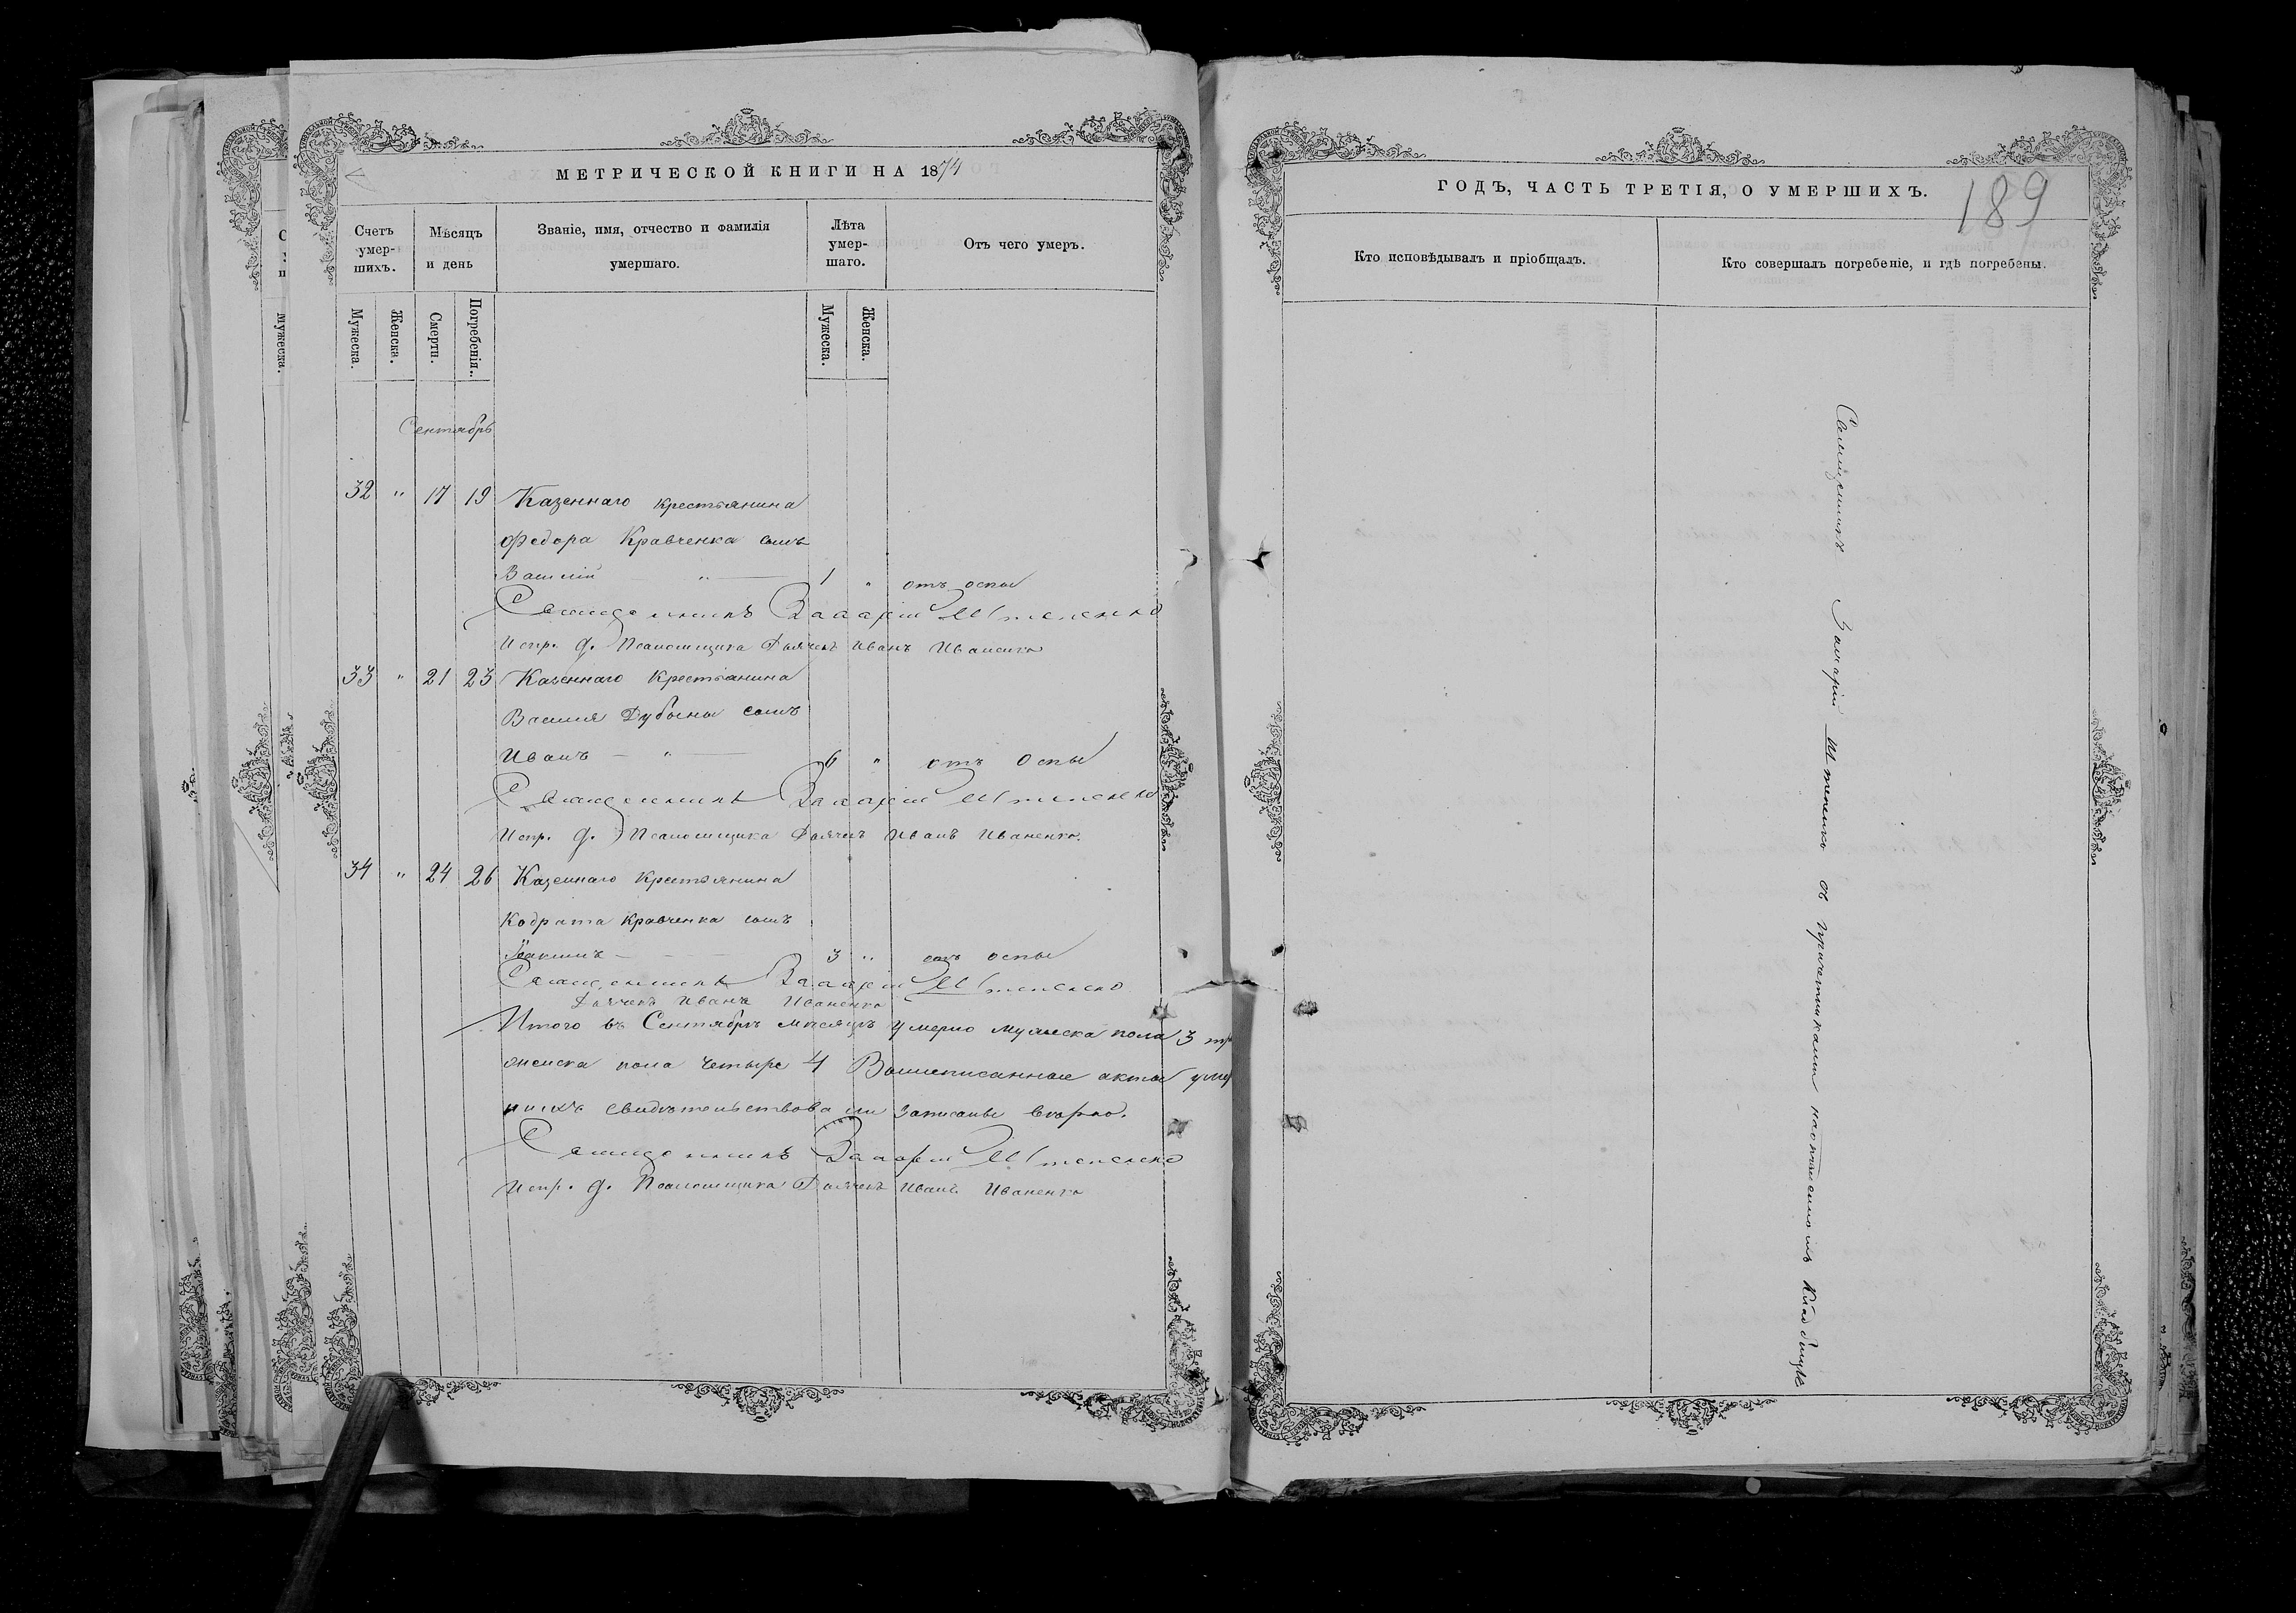 МЕТРИЧЕСКОЙ КНИГИ НА 1874
Счетъ умер-шихъ.
Мѣсяцъ и день
Званіе, имя, отчество и фамилія умершаго.
Лѣта умер-шаго.
Отъ чего умеръ.
Мужеска.
Женска.
Смерти.
Погребенія.
Мужеска.
Женска.
Сентябрь
32 " 17 19 Казеннаго крестьянина
Федора Кравченка сынъ
Василій " 1 " отъ оспы
Священникъ Захарій Штепенко
Испр. д. Псаломщика Дьячекъ Иванъ Иваненко
33 " 21 23 Казеннаго Крестьянина
Василія Дубыны сынъ
Иванъ - " 6 " отъ Оспы
Священникъ Захарій Штепенко
Испр. д. Псаломщика Дьячекъ Иванъ Иваненко.
34 " 24 26 Казеннаго Крестьянина
Кодрата Кравченка сынъ
Іоакимъ - 3 " отъ оспы
Священникъ Захарій Штепенко
Дьячекъ Иванъ Иваненко
Итого въ Сентябрѣ мѣсяцѣ умерло мужеска пола 3
женска пола четыре 4 Вышеписанные акты
свидѣтельствовали записаны вѣрно.
Священникъ Захарій Штепенко
Испр. д. Псаломщика Дьячекъ Иванъ Иваненко
ГОДЪ, ЧАСТЬ ТРЕТІЯ, О УМЕРШИХЪ.
189
Кто исповѣдывалъ и пріобщалъ.
Кто совершалъ погребеніе, и гдѣ погребены.
Священникъ Захарій Штепенко съ причетниками на Кладбищѣ